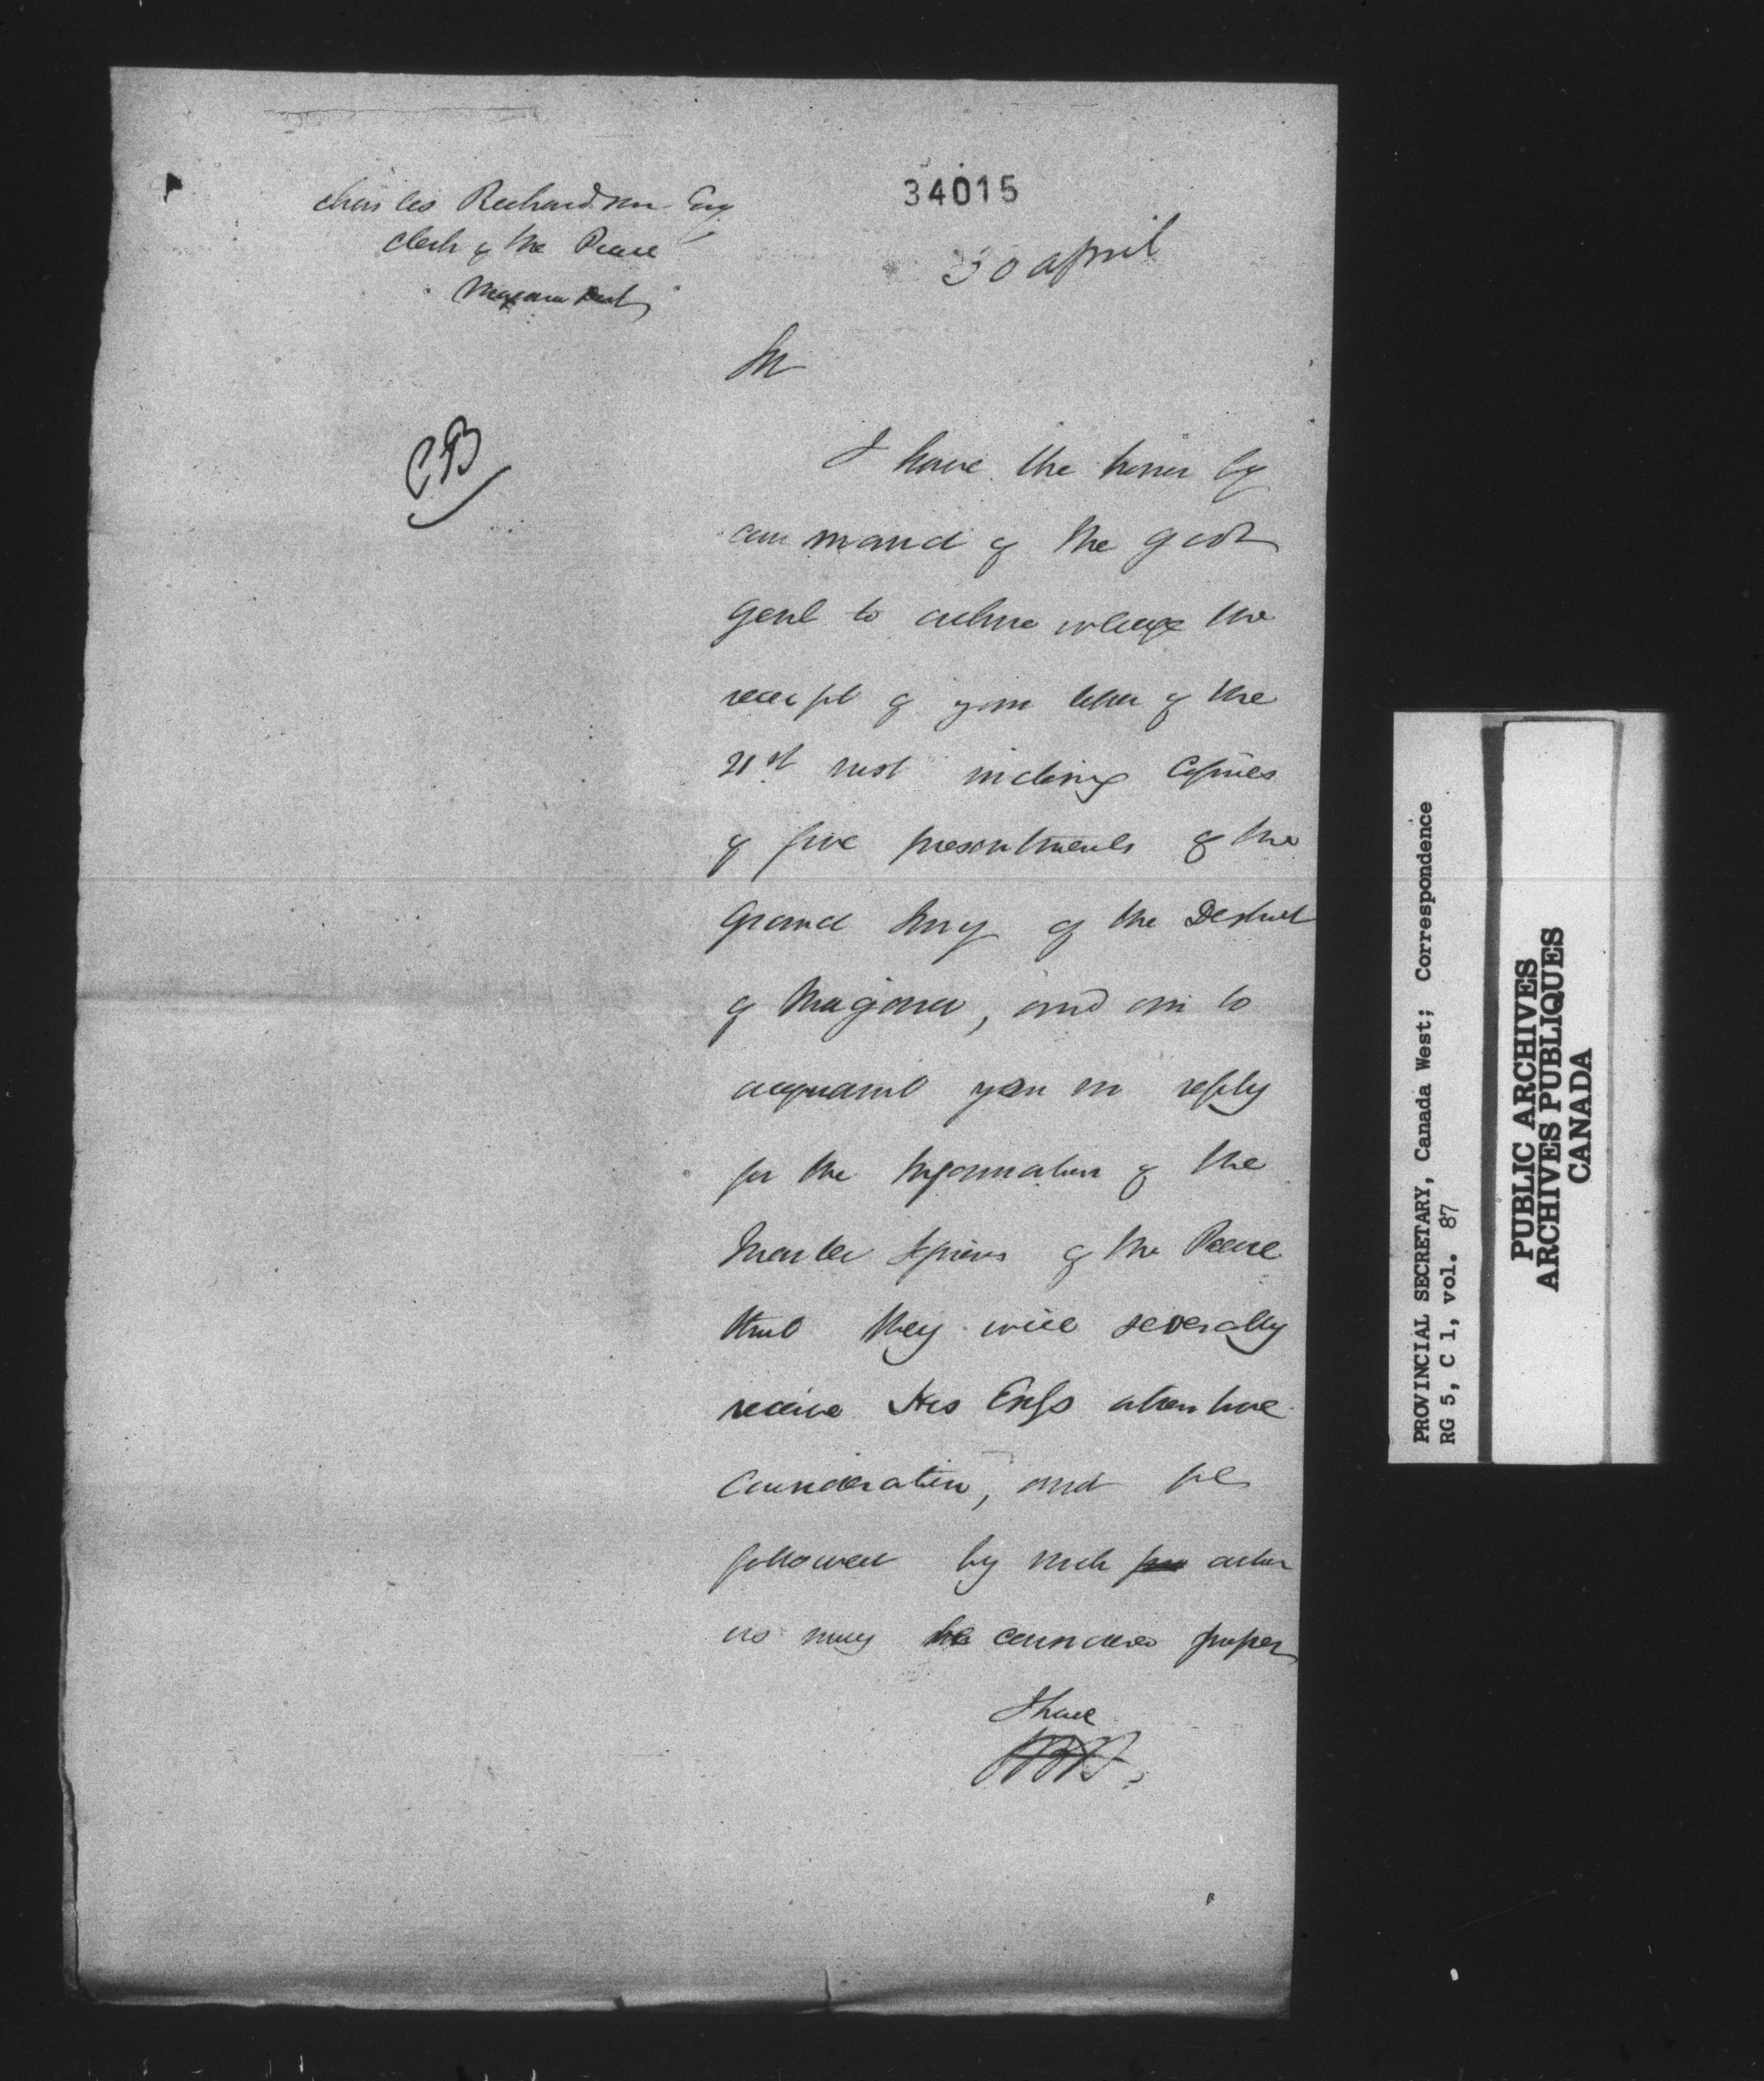 34015
Charles Richardson Esq
Clerk of the Peace
Niagara Dist
30 April
Sir
CB
I have the honor by
command of the Govr
Genl to acknowledge the
receipt of your letter of the
21st inst inclosing Copies
of five presentments of the
Grand Jury of the District
of Niagara, and am to
acquaint you in reply
for the Information of the
of the Peace
that they will severally
receive His Excys attentive
Consideration, and be
followed by such action
as may be considered proper
I have
PROVINCIAL SECRETARY, Canada West; Correspondence
RG 5, C 1, vol. 87
PUBLIC ARCHIVES
ARCHIVES PUBLIQUES
CANADA